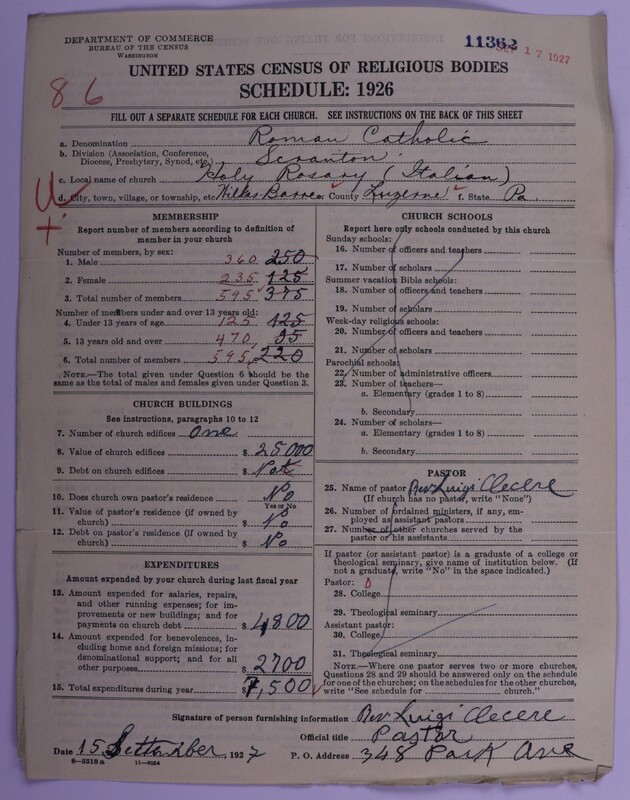 DEPARTMENT OF COMMERCE
BUREAU OF THE CENSUS
WASHINGTON
11362
17 1927
86
UNITED STATES CENSUS OF RELIGIOUS BODIES
SCHEDULE: 1926
FILL OUT A SEPARATE SCHEDULE FOR EACH CHURCH. SEE INSTRUCTIONS ON THE BACK OF THIS SHEET
a. Denomination Roman Catholic
b. Division (Association, Conference, Diocese, Presbytery, Synod, etc.) Scranton
c. Local name of church Holy Rosary (Italian)
d. City, town, village, or township, etc. Wilkes Barre e. County Luzerne f. State Pa.
MEMBERSHIP
Report number of members according to definition of
member in your church
Number of members, by sex:
1. Male 360 250
2. Female 235 125
3. Total number of members 595 375
Number of members under and over 13 years old:
4. Under 13 years of age 125 125
5. 13 years old and over 470 95
6. Total number of members 595 220
NOTE.—The total given under Question 6 should be
same as the total of males and females given under Question 3.
CHURCH BUILDINGS
See instructions, paragraphs 10 to 12
7. Number of church edifices one
8. Value of church edifices $ 25000
9. Debt on church edifices $ Not
10. Does church own pastor's residence No
Yes or No
11. Value of pastor's residence (if owned by
church) $ No
12. Debt on pastor's residence (if owned by
church) $ No
EXPENDITURES
Amount expended by your church during last fiscal year
13. Amount expended for salaries, repairs,
and other running expenses; for im-
provements or new buildings; and for
payments on church debt $ 4800
14. Amount expended for benevolences, in-
cluding home and foreign missions; for
denominational support; and for all
other purposes $ 2700
15. Total expenditures during year $ 7,500
CHURCH SCHOOLS
Report here only schools conducted by this church
Sunday schools:
16. Number of officers and teachers
17. Number of scholars
Summer vacation Bible schools:
18. Number of officers and teachers
19. Number of scholars
Week-day religious schools:
20. Number of officers and teachers
21. Number of scholars
Parochial schools:
22. Number of administrative officers
23. Number of teachers—
a. Elementary (grades 1 to 8)
b. Secondary
24. Number of scholars—
a. Elementary (grades 1 to 8)
b. Secondary
PASTOR
25. Name of pastor Rev. Luigi Clecere
(If church has no pastor, write "None")
26. Number of ordained ministers, if any, em-
ployed as assistant pastors
27. Number of other churches served by the
pastor or his assistants
If pastor (or assistant pastor) is a graduate of a college or
theological seminary, give name of institution below. (If
not a graduate, write "No" in the space indicated.)
Pastor: 0
28. College
29. Theological seminary
Assistant pastor:
30. College
31. Theological seminary
NOTE.—Where one pastor serves two or more churches,
Questions 28 and 29 should be answered only on the schedule
for one of the churches; on the schedules for the other churches,
write "See schedule for church."
Signature of person furnishing information Rev Luigi Clecere
Official title Pastor
Date 15 September, 1927 P. O. Address 348 Park Ave
8—5518a 11—9054